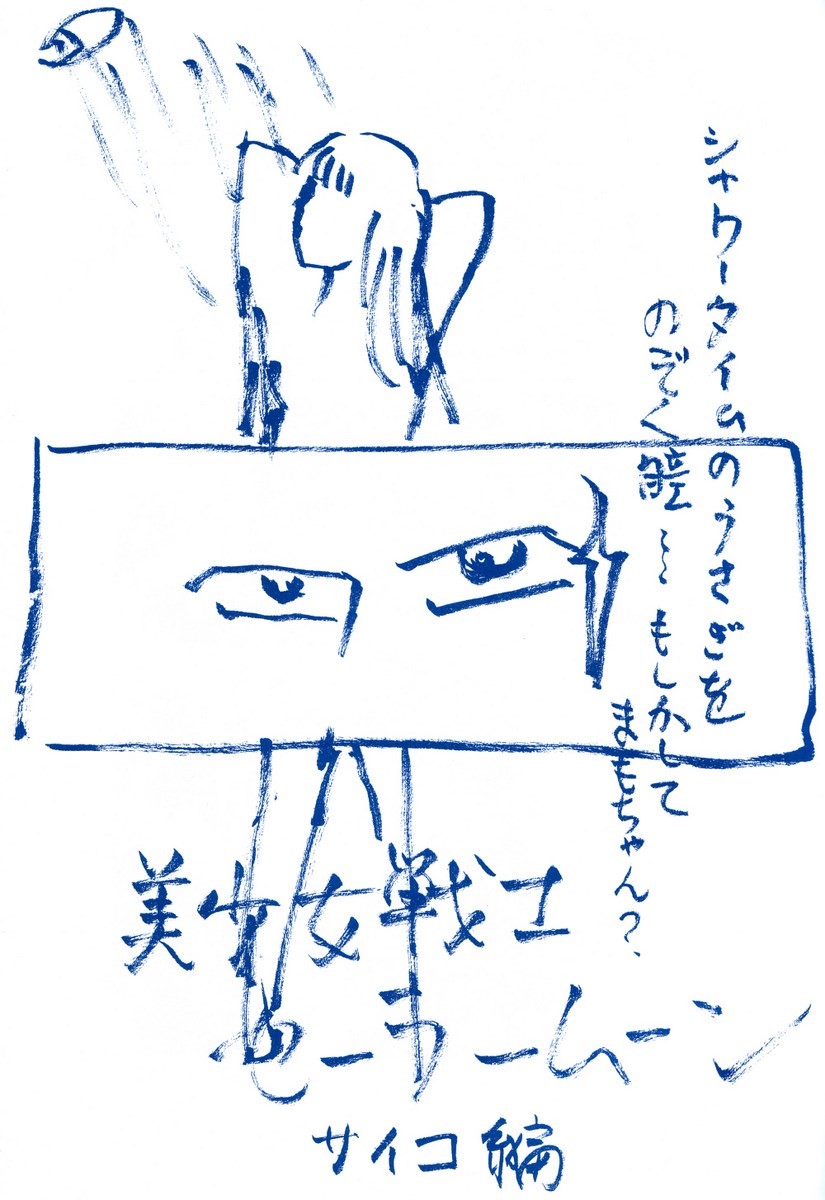 シャワータイムのうさぎを
のぞく瞳……もしかして
まもちゃん?
美少女戦士
セーラームーン
サイコ編